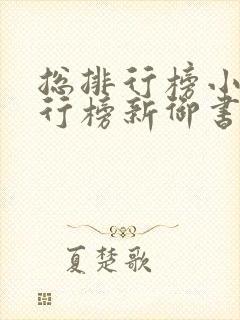 总排行榜小
行榜新御书
夏楚歌